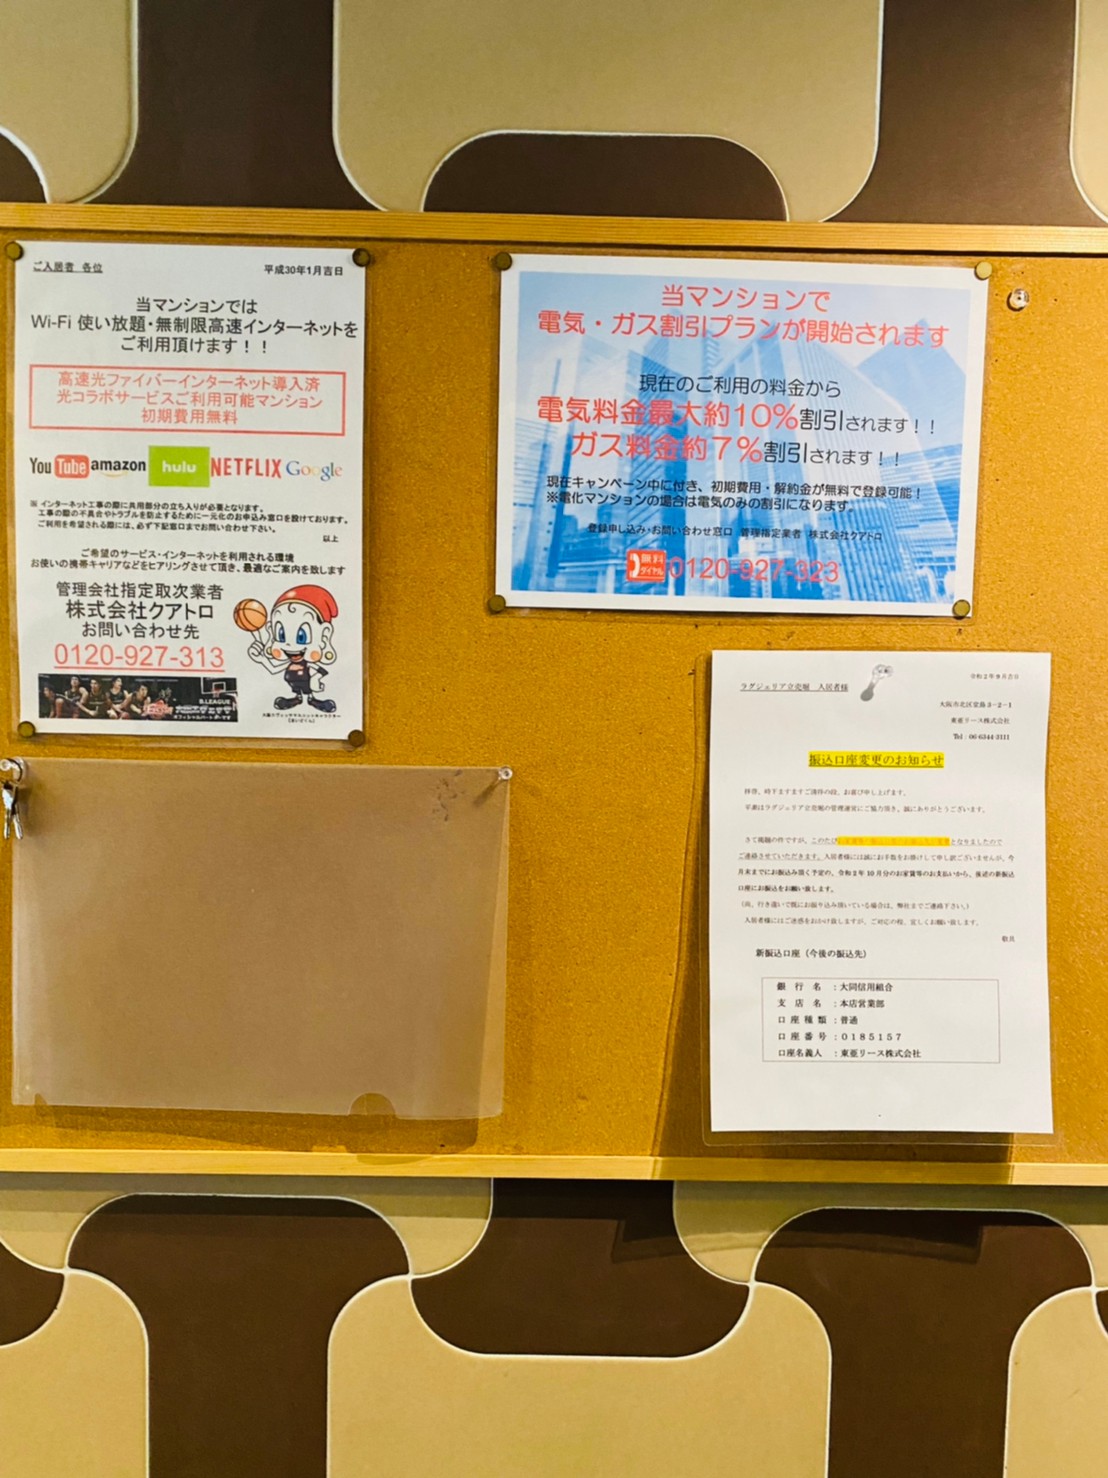 ご入居者 各位
平成30年1月吉日
当マンションでは
Wi-Fi 使い放題・無制限高速インターネットを
ご利用頂けます！！
高速光ファイバーインターネット導入済
光コラボサービスご利用可能マンション
初期費用無料
YouTube amazon hulu NETFLIX Google
※ インターネット工事の際に共用部分の立ち入りが必要となります。
工事の際の不具合やトラブルを防止するために一元化のお申込み窓口を設けております。
ご利用を希望される際には、必ず下記窓口までお問い合わせ下さい。
以上
ご希望のサービス・インターネットを利用される環境
お使いの携帯キャリアなどをヒアリングさせて頂き、最適なご案内を致します
管理会社指定取次業者
株式会社クアトロ
お問い合わせ先
0120-927-313
B.LEAGUE
当マンションで
電気・ガス割引プランが開始されます
現在のご利用の料金から
電気料金最大約10%割引されます！！
ガス料金約7%割引されます！！
現在キャンペーン中に付き、初期費用・解約金が無料で登録可能！
※電化マンションの場合は電気のみの割引になります。
登録申し込み・お問い合わせ窓口 管理指定業者 株式会社クアトロ
無料
ダイヤル
0120-927-323
ラグジェリア立売堀 入居者様
令和2年9月吉日
大阪市北区堂島3-2-1
東亜リース株式会社
Tel：06-6344-3111
振込口座変更のお知らせ
拝啓、時下ますますご清祥の段、お喜び申し上げます。
平素はラグジェリア立売堀の管理運営にご協力頂き、誠にありがとうございます。
さて掲題の件ですが、このたび
となりましたので
ご連絡させていただきます。入居者様には誠にお手数をお掛けして申し訳ございませんが、今
月末までにお振込み頂く予定の、令和2年10月分のお家賃等のお支払いから、後述の新振込
口座にお振込をお願い致します。
（尚、行き違いで既にお振り込み頂いている場合は、弊社までご連絡下さい。）
入居者様にはご迷惑をおかけ致しますが、ご対応の程、宜しくお願い致します。
敬具
新振込口座（今後の振込先）
銀 行 名 ：大同信用組合
支 店 名 ：本店営業部
口 座 種 類 ：普通
口 座 番 号 ：0185157
口座名義人 ：東亜リース株式会社